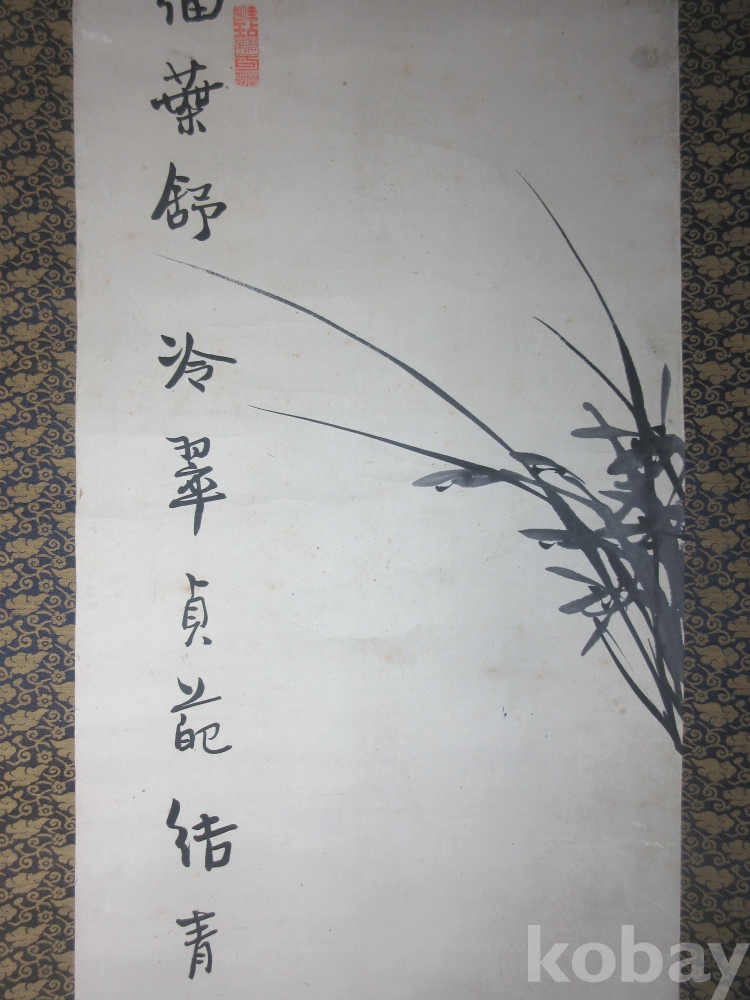 細葉舒冷翠貞葩結青
kobay